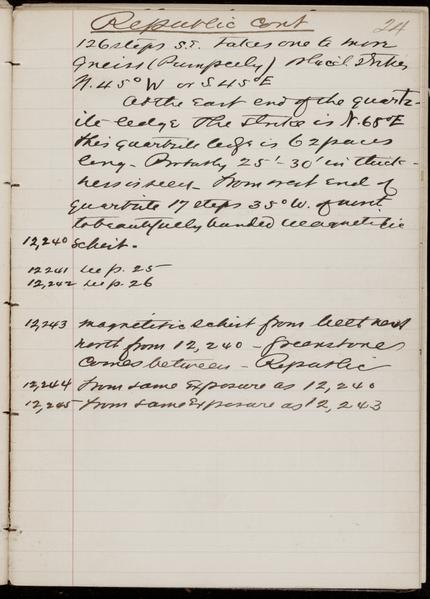 Republic cont 24
126 steps S.E. takes one to more
gneiss (Pumpelly) which strikes
N. 45° W or S 45° E
At the East end of the quartz-
ite ledge the strike is N. 65° E
This quartzite ledge is 62 paces
long - Probably 25'-30' in thick-
ness is seen - From west end of
quartzite 17 steps 35° W. of
to beautifully banded magnetitic
12,240 Schist.
12241 see p. 25
12,242 see p. 26
12,243 magnetitic schist from belt next
north from 12,240 - Greenstone
comes between - Republic
12,244 From same Exposure as 12,240
12,245 From same Exposure as 12,243